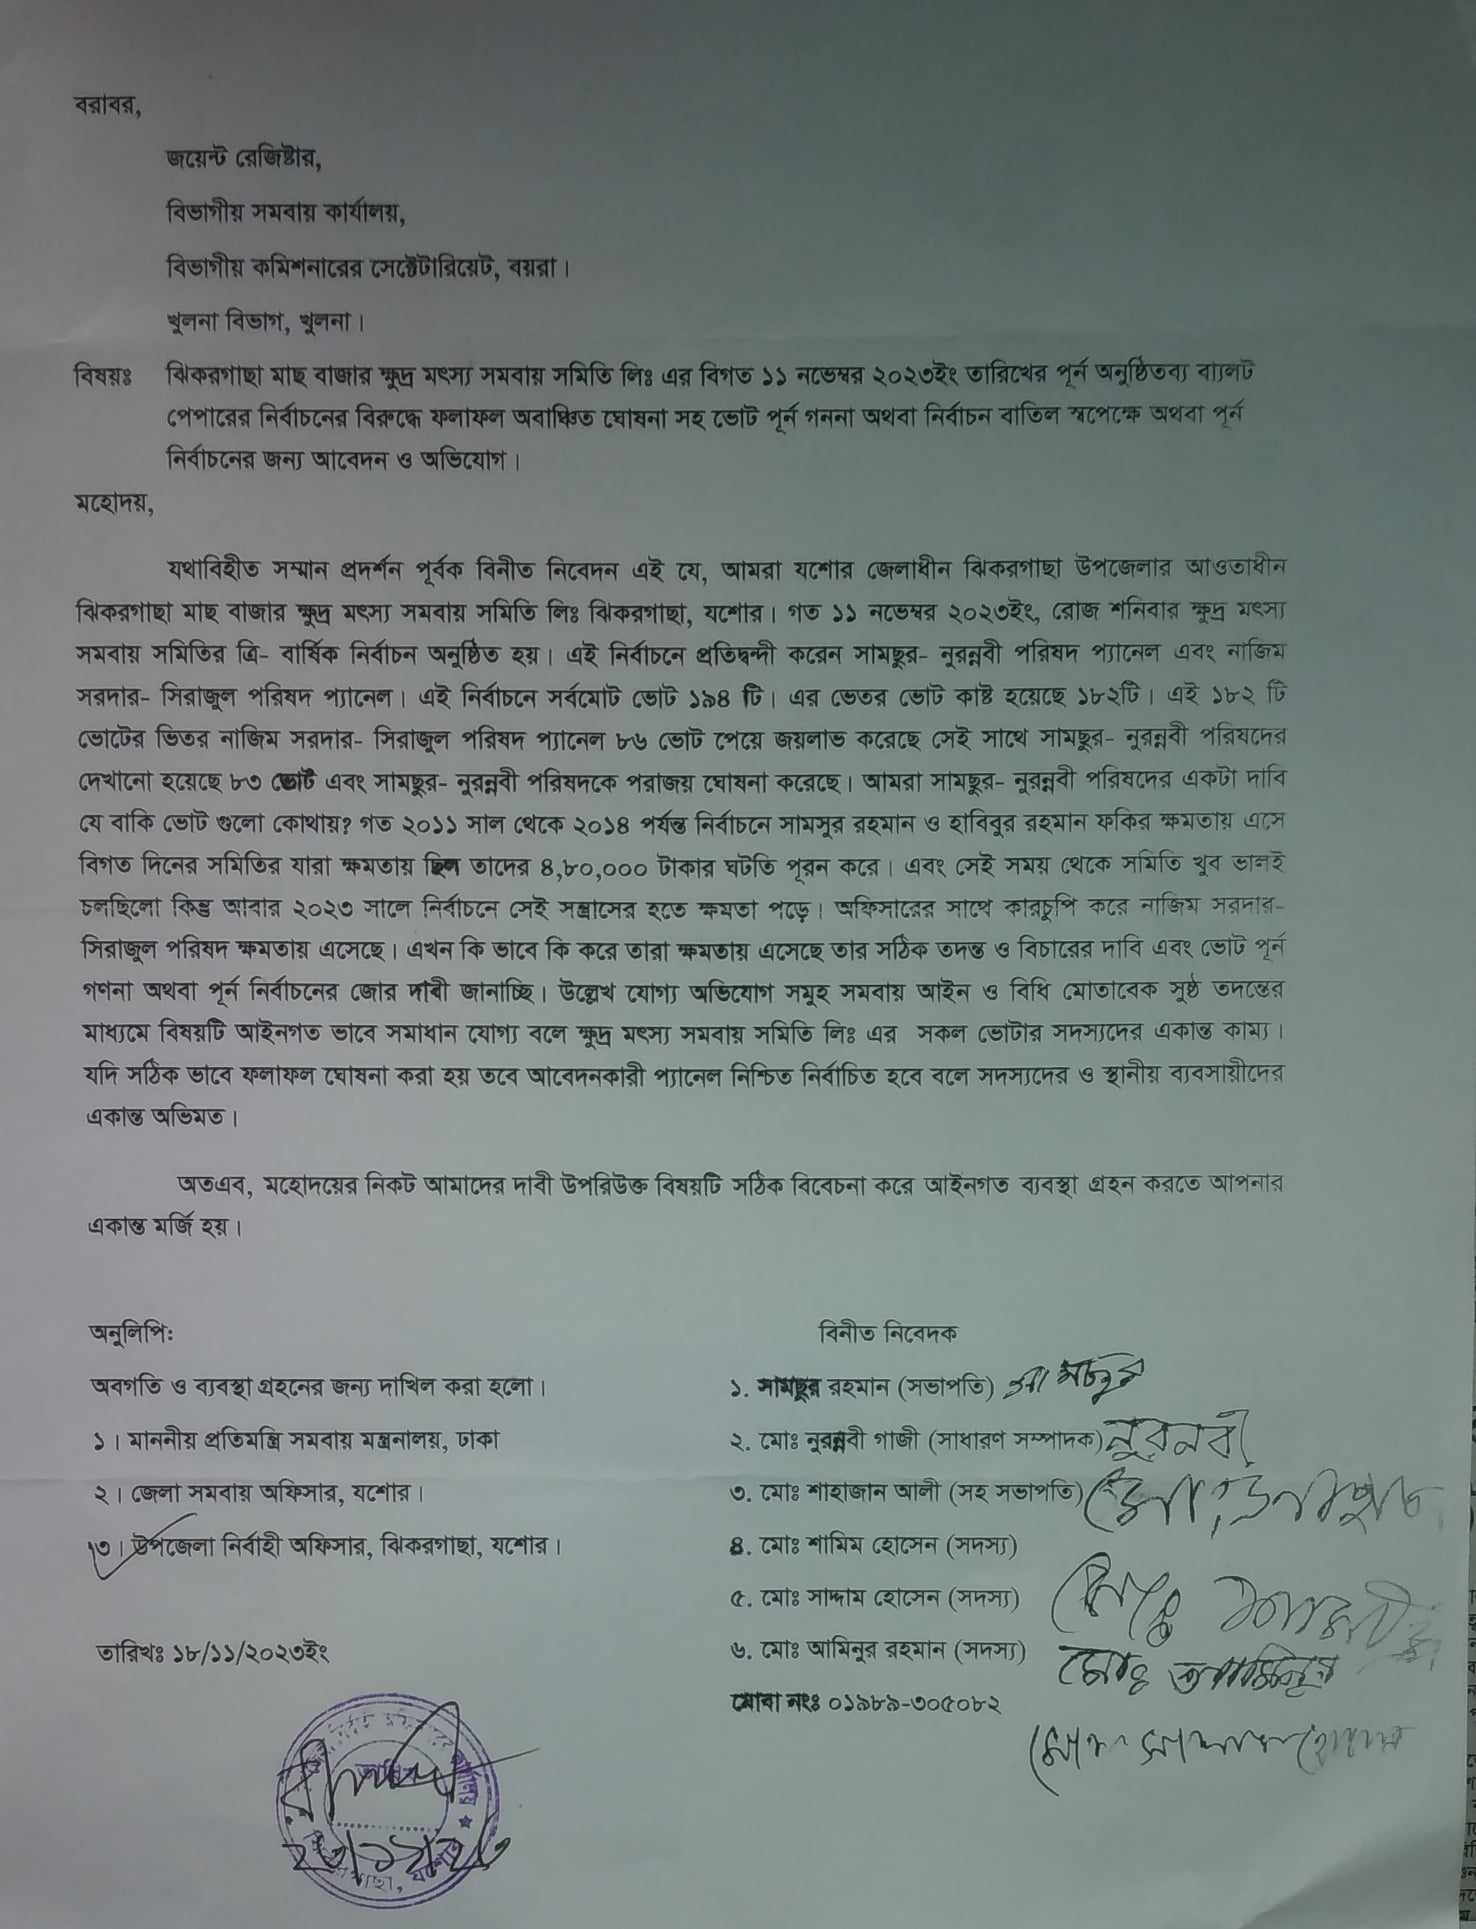 বরাবর,
জয়েন্ট রেজিষ্টার,
বিভাগীয় সমবায় কার্যালয়,
বিভাগীয় কমিশনারের সেক্টেটারিয়েট, বয়রা।
খুলনা বিভাগ, খুলনা।
বিষয়ঃ ঝিকরগাছা মাছ বাজার ক্ষুদ্র মৎস্য সমবায় সমিতি লিঃ এর বিগত ১১ নভেম্বর ২০২৩ইং তারিখের পূর্ন অনুষ্ঠিতব্য ব্যালট
পেপারের নির্বাচনের বিরুদ্ধে ফলাফল অবাঞ্চিত ঘোষনা সহ ভোট পূর্ন গননা অথবা নির্বাচন বাতিল স্বপেক্ষে অথবা পূর্ন
নির্বাচনের জন্য আবেদন ও অভিযোগ।
মহোদয়,
যথাবিহীত সম্মান প্রদর্শন পূর্বক বিনীত নিবেদন এই যে, আমরা যশোর জেলাধীন ঝিকরগাছা উপজেলার আওতাধীন
ঝিকরগাছা মাছ বাজার ক্ষুদ্র মৎস্য সমবায় সমিতি লিঃ ঝিকরগাছা, যশোর। গত ১১ নভেম্বর ২০২৩ইং, রোজ শনিবার ক্ষুদ্র মৎস্য
সমবায় সমিতির ত্রি- বার্ষিক নির্বাচন অনুষ্ঠিত হয়। এই নির্বাচনে প্রতিদ্বন্দী করেন সামছুর- নুরন্নবী পরিষদ প্যানেল এবং নাজিম
সরদার- সিরাজুল পরিষদ প্যানেল। এই নির্বাচনে সর্বমোট ভোট ১৯৪ টি। এর ভেতর ভোট কাষ্ট হয়েছে ১৮২টি। এই ১৮২ টি
ভোটের ভিতর নাজিম সরদার- সিরাজুল পরিষদ প্যানেল ৮৬ ভোট পেয়ে জয়লাভ করেছে সেই সাথে সামছুর- নুরন্নবী পরিষদের
দেখানো হয়েছে ৮৩ ভোট এবং সামছুর- নুরন্নবী পরিষদকে পরাজয় ঘোষনা করেছে। আমরা সামছুর- নুরন্নবী পরিষদের একটা দাবি
যে বাকি ভোট গুলো কোথায়? গত ২০১১ সাল থেকে ২০১৪ পর্যন্ত নির্বাচনে সামসুর রহমান ও হাবিবুর রহমান ফকির ক্ষমতায় এসে
বিগত দিনের সমিতির যারা ক্ষমতায় ছিল তাদের ৪,৮০,০০০ টাকার ঘটতি পূরন করে। এবং সেই সময় থেকে সমিতি খুব ভালই
চলছিলো কিন্তু আবার ২০২৩ সালে নির্বাচনে সেই সন্ত্রাসের হতে ক্ষমতা পড়ে। অফিসারের সাথে কারচুপি করে নাজিম সরদার-
সিরাজুল পরিষদ ক্ষমতায় এসেছে। এখন কি ভাবে কি করে তারা ক্ষমতায় এসেছে তার সঠিক তদন্ত ও বিচারের দাবি এবং ভোট পূর্ন
গণনা অথবা পূর্ন নির্বাচনের জোর দাবী জানাচ্ছি। উল্লেখ যোগ্য অভিযোগ সমূহ সমবায় আইন ও বিধি মোতাবেক সুষ্ঠ তদন্তের
মাধ্যমে বিষয়টি আইনগত ভাবে সমাধান যোগ্য বলে ক্ষুদ্র মৎস্য সমবায় সমিতি লিঃ এর সকল ভোটার সদস্যদের একান্ত কাম্য।
যদি সঠিক ভাবে ফলাফল ঘোষনা করা হয় তবে আবেদনকারী প্যানেল নিশ্চিত নির্বাচিত হবে বলে সদস্যদের ও স্থানীয় ব্যবসায়ীদের
একান্ত অভিমত।
অতএব, মহোদয়ের নিকট আমাদের দাবী উপরিউক্ত বিষয়টি সঠিক বিবেচনা করে আইনগত ব্যবস্থা গ্রহন করতে আপনার
একান্ত মর্জি হয়।
অনুলিপি:
অবগতি ও ব্যবস্থা গ্রহনের জন্য দাখিল করা হলো।
১। মাননীয় প্রতিমন্ত্রি সমবায় মন্ত্রনালয়, ঢাকা
২। জেলা সমবায় অফিসার, যশোর।
৩। উপজেলা নির্বাহী অফিসার, ঝিকরগাছা, যশোর।
তারিখঃ ১৮/১১/২০২৩ইং
বিনীত নিবেদক
১. সামছুর রহমান (সভাপতি) সামছুর
২. মোঃ নুরন্নবী গাজী (সাধারণ সম্পাদক) নুরনবী
৩. মোঃ শাহাজান আলী (সহ সভাপতি)
৪. মোঃ শামিম হোসেন (সদস্য)
৫. মোঃ সাদ্দাম হোসেন (সদস্য)
৬. মোঃ আমিনুর রহমান (সদস্য) মোঃ আমিনুর
মোবা নংঃ ০১৯৮৯-৩০৫০৮২